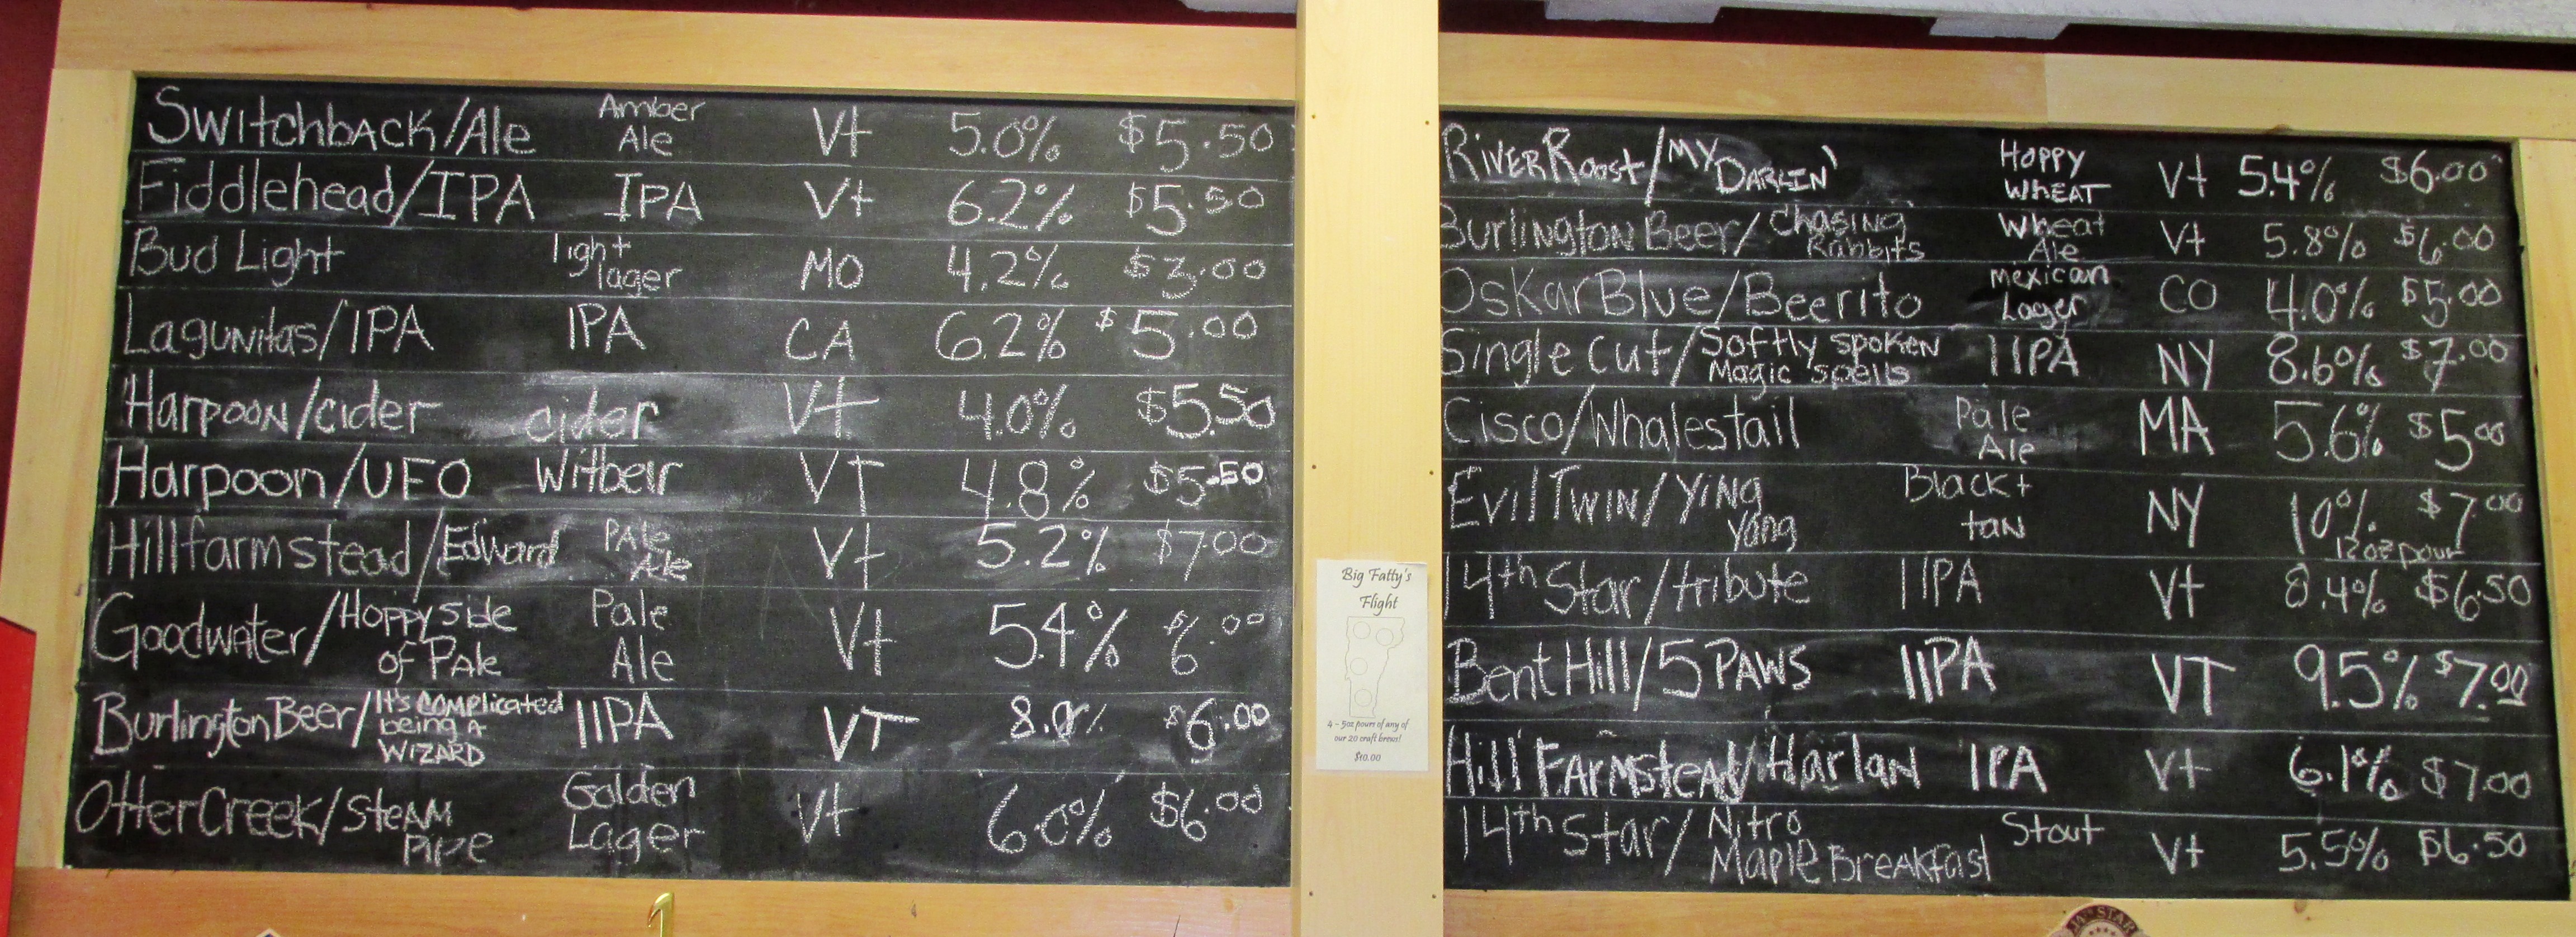 Switchback/Ale Amber Ale Vt 5.0% $5.50
Fiddlehead/IPA IPA Vt 6.2% $5.50
Bud Light light lager MO 4.2% $3.00
Lagunitas/IPA IPA CA 6.2% $5.00
Harpoon/cider cider Vt 4.0% $5.50
Harpoon/UFO Witbeir VT 4.8% $5.50
Hillfarmstead/Edward Pale Ale Vt 5.2% $7.00
Goodwater/Hoppy side of Pale Pale Ale Vt 5.4% $6.00
Burlington Beer/It's complicated being A WIZARD IIPA VT 8.0% $6.00
Otter Creek/Steam Pipe Golden Lager Vt 6.0% $6.00
Big Fatty's
Flight
4 - 5oz pours of any of
our 20 craft brews!
$10.00
River Roost/MY DARLIN' Hoppy WHEAT Vt 5.4% $6.00
Burlington Beer/Chasing Rabbits Wheat Ale Vt 5.8% $6.00
Oskar Blue/Beerito mexican Lager CO 4.0% $5.00
Single cut/Softly spoken Magic spells IIPA NY 8.6% $7.00
Cisco/Whalestail Pale Ale MA 5.6% $5.00
Evil Twin/Ying Yang Black + tan NY 10% 12oz pour $7.00
14th Star/tribute IIPA Vt 8.4% $6.50
Bent Hill/5 PAWS IIPA VT 9.5% $7.00
Hill Farmstead/Harlan IPA Vt 6.1% $7.00
14th Star/Nitro Maple Breakfast Stout Vt 5.5% $6.50